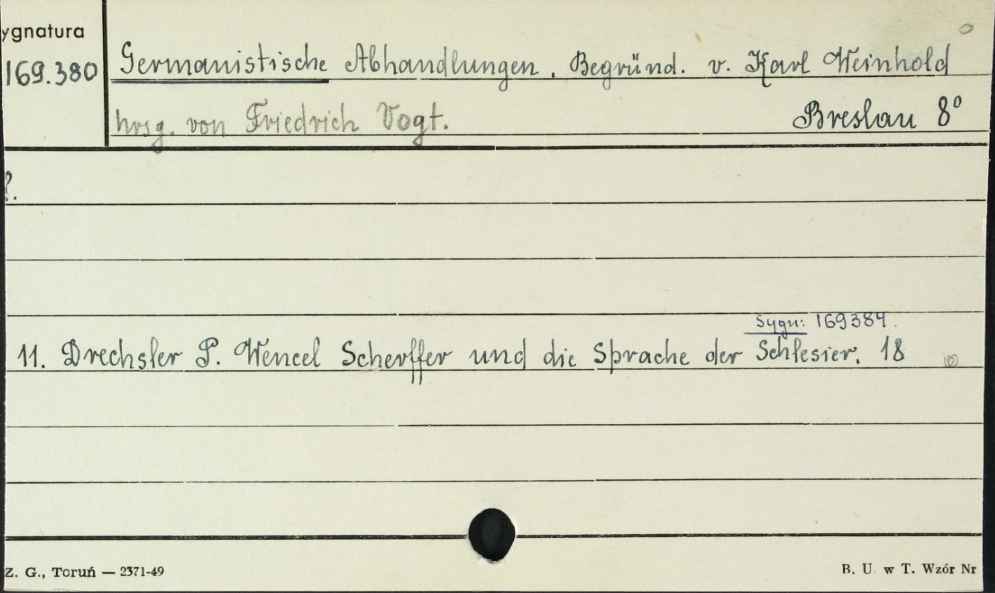 ygnatura
169.380
Germanistische Abhandlungen. Begründ. v. Karl Weinhold
hrsg. von Friedrich Vogt. Breslau 8°
Sygn: 169384.
11. Drechsler P. Wencel Scherffer und die Sprache der Schlesier. 18
Z. G., Toruń — 2371-49
B. U. w T. Wzór Nr